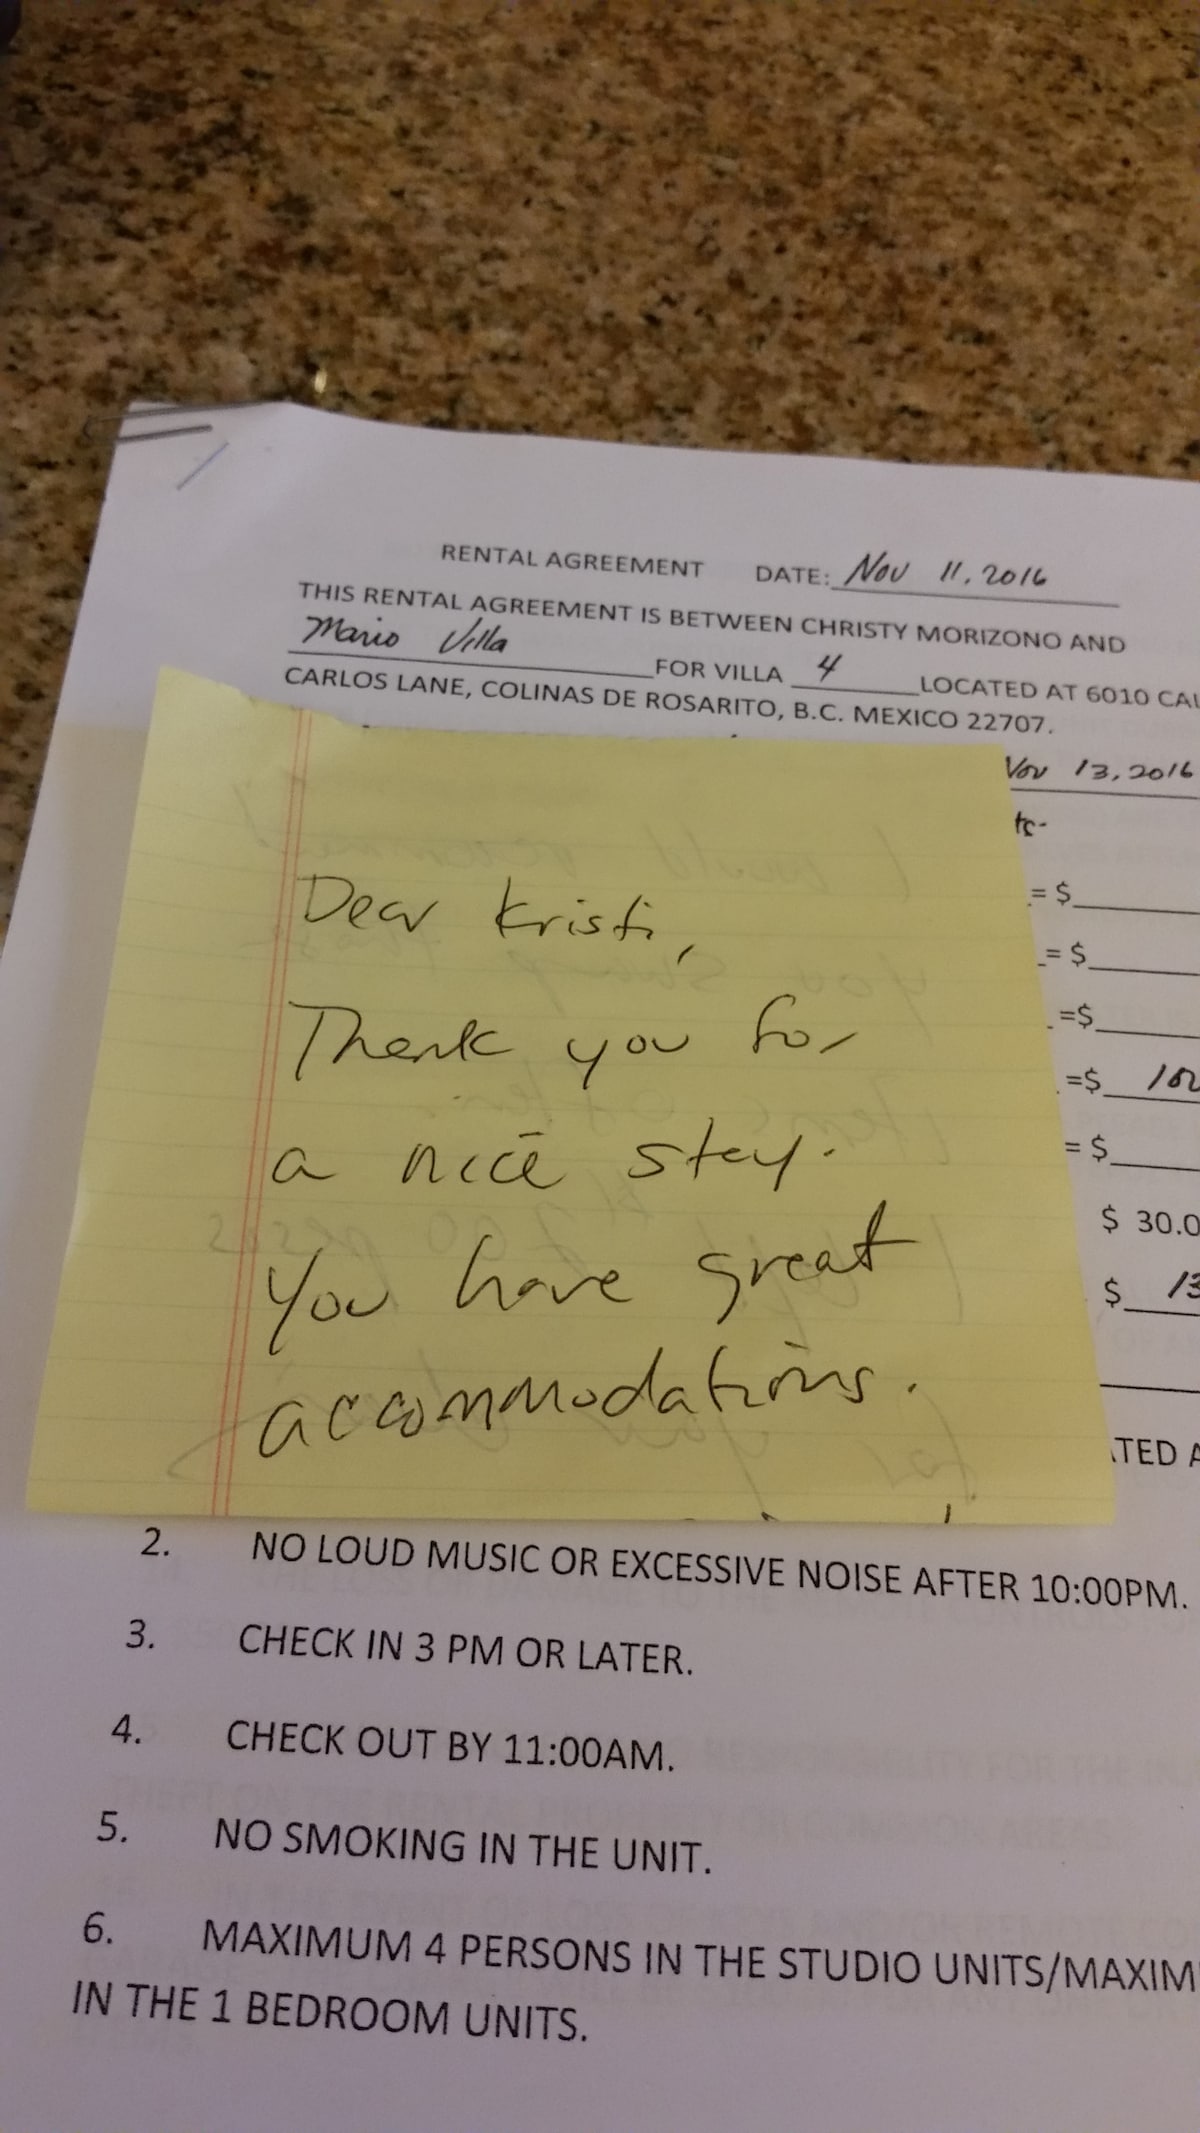 RENTAL AGREEMENT DATE: Nov 11, 2016
THIS RENTAL AGREEMENT IS BETWEEN CHRISTY MORIZONO AND
Mario Villa FOR VILLA 4 LOCATED AT 6010
CARLOS LANE, COLINAS DE ROSARITO, B.C. MEXICO 22707.
Nov 13, 2016
= $
= $
=$
=$
= $
$ 30.0
$ 13
Dear Kristi,
Thank you for
a nice stay.
You have great
accommodations.
2. NO LOUD MUSIC OR EXCESSIVE NOISE AFTER 10:00PM.
3. CHECK IN 3 PM OR LATER.
4. CHECK OUT BY 11:00AM.
5. NO SMOKING IN THE UNIT.
6. MAXIMUM 4 PERSONS IN THE STUDIO UNITS/MAXIM
IN THE 1 BEDROOM UNITS.